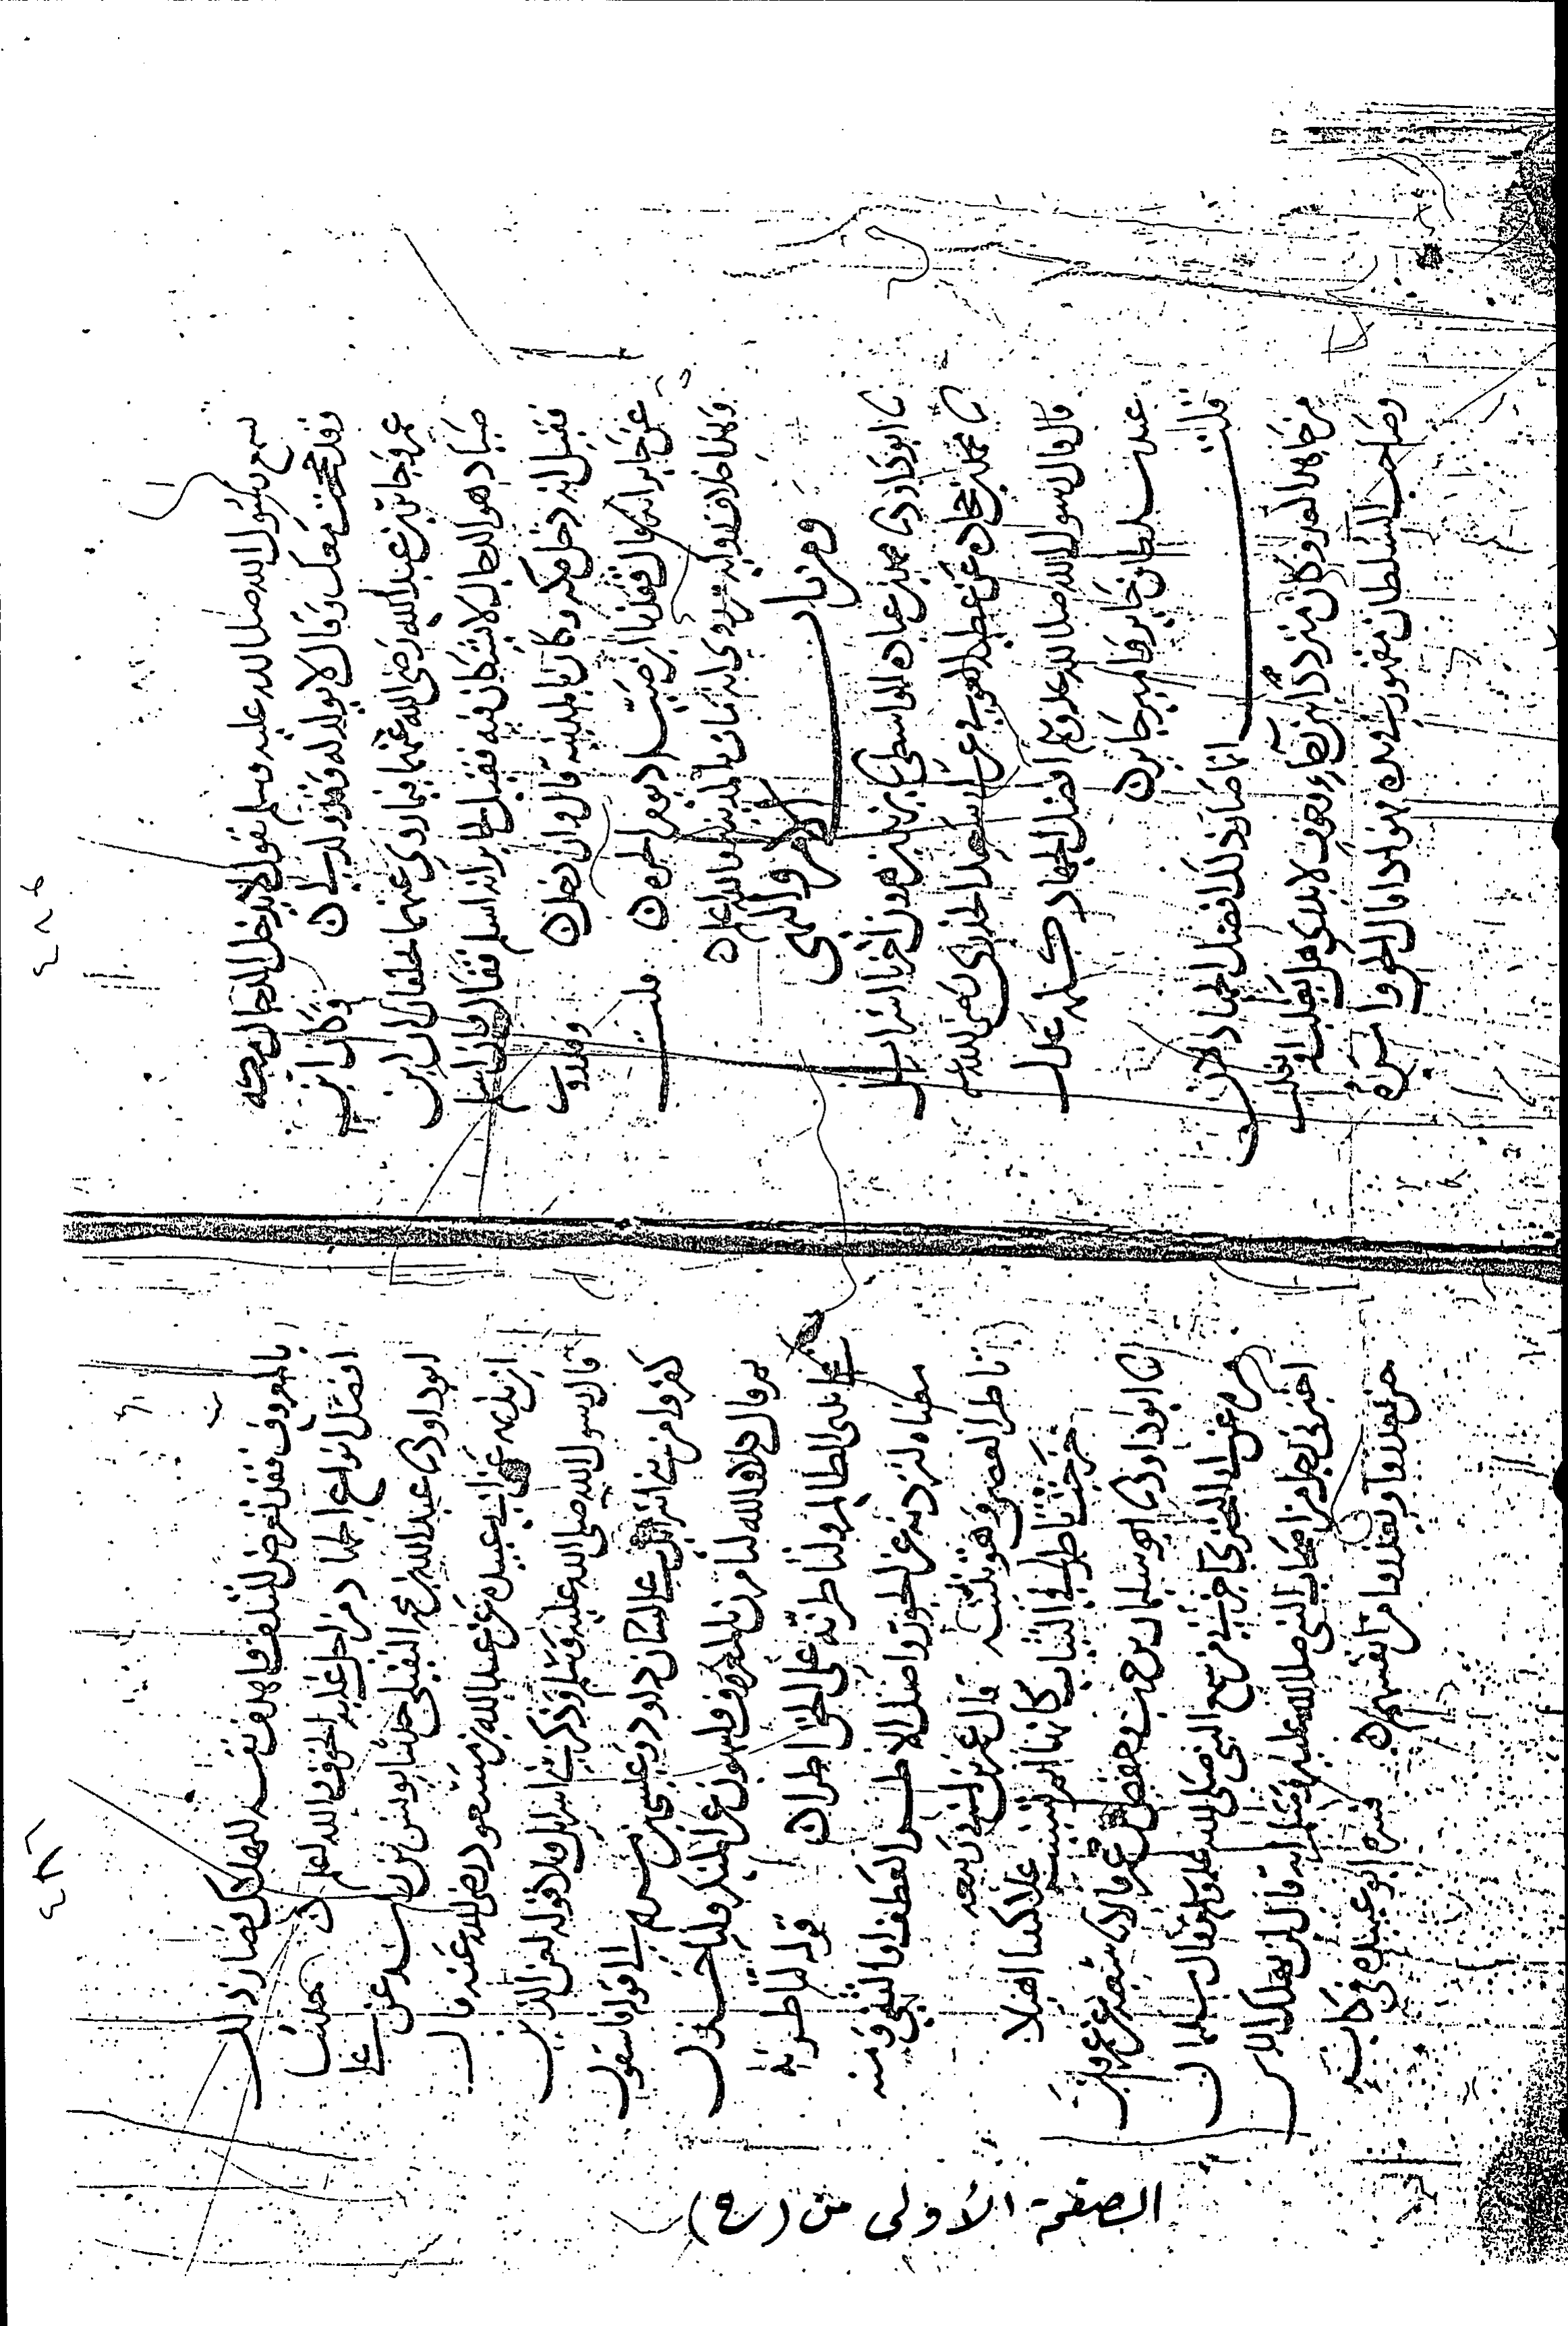 ٤٨٦
سمع رسول الله صلى الله عليه وسلم يقول لا يدخل الدجال مكة
وقد حججت معك وقال لا يولد له وقد ولد لي وكان ابن
عمر وجابر بن عبد الله رضي الله عنهما فيما روي عنهما يحلفان ان ابن
صياد هو الدجال لا يشكان فيه فقيل لجابر انه اسلم فقال وان اسلم
فقيل انه دخل مكة وكان بالمدينة قال وان دخل وقد روي
عن جابر انه قال فقدنا ابن صياد يوم الحرة قلت
وهذا خلاف رواية من روى انه مات بالمدينة والله اعلم
ومن باب الامر والنهي
نا ابو داود نا محمد بن عبادة الواسطي نا يزيد بن هرون اخبرنا اسرائيل
نا محمد بن جحادة عن عطية العوفي عن ابي سعيد الخدري رضي الله عنه
قال قال رسول الله صلى الله عليه وسلم افضل الجهاد كلمة عدل
عند سلطان جائر او امير جائر
قلت انما صار ذلك افضل الجهاد لان
من جاهد العدو وكان مترددا بين رجاء وخوف لا يدري هل يغلب او يغلب
وصاحب السلطان مقهور في يده فهو اذا قال الحق وامره
بالمعروف فقد تعرض للتلف واهدف نفسه للهلاك فصار ذلك
افضل انواع الجهاد من اجل غلبة الخوف والله اعلم قلت
ابو داود نا عبد الله بن محمد النفيلي حدثنا يونس بن راشد عن علي
ابن بذيمة عن ابي عبيدة عن عبد الله بن مسعود رضي الله عنه قال
قال رسول الله صلى الله عليه وسلم وذكر بني اسرائيل وتلا قوله لعن الذين
كفروا من بني اسرائيل على لسان داود وعيسى بن مريم الى قوله فاسقون
ثم قال كلا والله لتامرن بالمعروف ولتنهون عن المنكر ولتاخذن
على يدي الظالم ولتاطرنه على الحق اطرا قوله لتاطرنه
معناه لتردنه عن الجور واصل الاطر العطف او الثني ومنه
تاطر العصى وهو تثنيه قال عمر بن ابي ربيعة
خرجت تاطر في الثياب كانها ايم يسيب علا كثيبا اهيلا
نا ابو داود نا سليمان بن حرب وحفص بن عمر قالا نا شعبة عن عمرو بن
مرة عن ابي البختري اخبرني من سمع النبي صلى الله عليه وسلم وقال سليمان
اخبرني رجل من اصحاب النبي صلى الله عليه وسلم انه قال لن يهلك الناس
حتى يعذروا او يعذروا من انفسهم فسره ابو عبيد في كتابه
الصفحة الأولى من (ح)